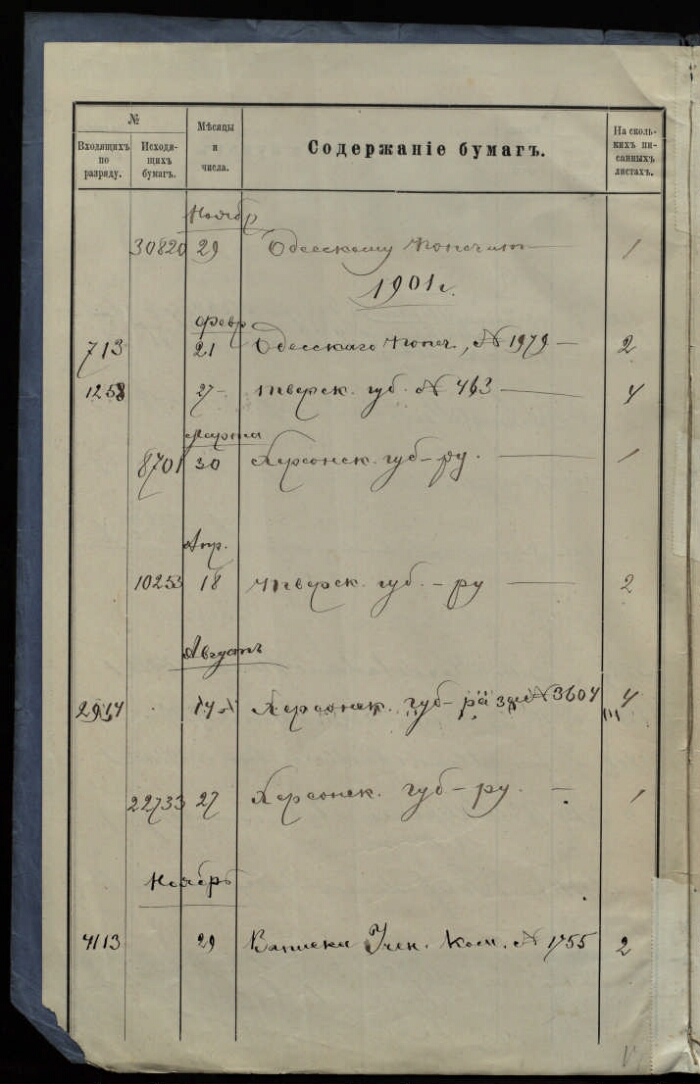 №
Входящихъ по разряду.
Исходящихъ бумагъ.
Мѣсяцы и числа.
Содержаніе бумагъ.
На сколькихъ писанныхъ листахъ.
Ноябр
30820 29 Одесскому попечит 1
1901 г.
февр.
713 21 Одесскаго попеч., № 1979 — 2
1258 27 – Тверск. губ. № 463 — 4
Марта
8701 30 Херсонск. губ–ру. — 1
Апр.
10253 18 Тверск. губ. – ру — 2
Августъ
14 Херсонск. губ–ра № 3604 4
22733 27 Херсонск. губ–ру. — 1
Ноябрь
4113 29 Учен. Ком. № 1755 2